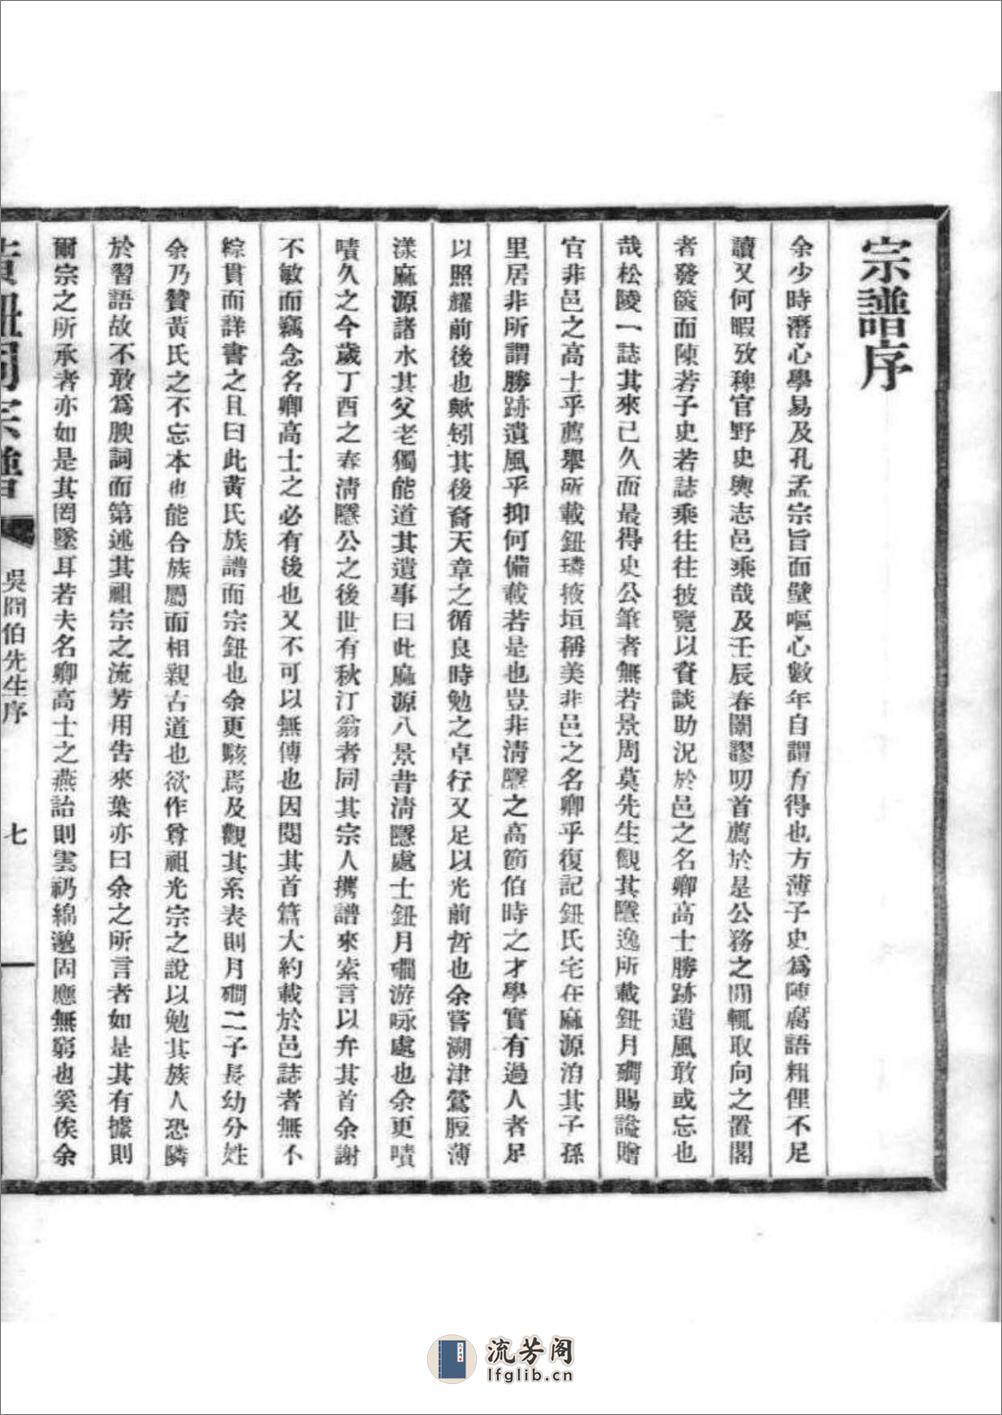 宗譜序
余少時潛心學易及孔孟宗旨面壁嘔心數年自謂有得也方薄子史爲陳腐語粗俚不足
讀又何暇攷稗官野史輿志邑乘哉及壬辰春闈謬叨首薦於是公務之閒輒取向之置閣
者發篋而陳若子史若誌乘往往披覽以資談助況於邑之名卿高士勝跡遺風敢或忘也
哉松陵一誌其來已久而最得史公筆者無若景周莫先生觀其隱逸所載鈕月磵賜諡贈
官非邑之高士乎薦舉所載鈕璘掖垣稱美非邑之名卿乎復記鈕氏宅在麻源洎其子孫
里居非所謂勝跡遺風乎抑何備載若是也豈非淸隱之高節伯時之才學實有過人者足
以照耀前後也歟矧其後裔天章之循良時勉之卓行又足以光前哲也余嘗溯津鶯脰薄
漾麻源諸水其父老獨能道其遺事曰此麻源八景昔淸隱處士鈕月磵游咏處也余更嘖
嘖久之今歲丁酉之春淸隱公之後世有秋汀翁者同其宗人攜譜來索言以弁其首余謝
不敏而竊念名卿高士之必有後也又不可以無傳也因閱其首篇大約載於邑誌者無不
綜貫而詳書之且曰此黃氏族譜而宗鈕也余更駭焉及觀其系表則月磵二子長幼分姓
余乃贊黃氏之不忘本也能合族屬而相親古道也欲作尊祖光宗之說以勉其族人恐隣
於習語故不敢爲腴詞而第述其祖宗之流芳用吿來葉亦曰余之所言者如是其有據則
爾宗之所承者亦如是其罔墜耳若夫名卿高士之燕詒則雲礽綿邈固應無窮也奚俟余
黃鈕同宗譜
吳閶伯先生序
七
流芳阁
lfglib.cn